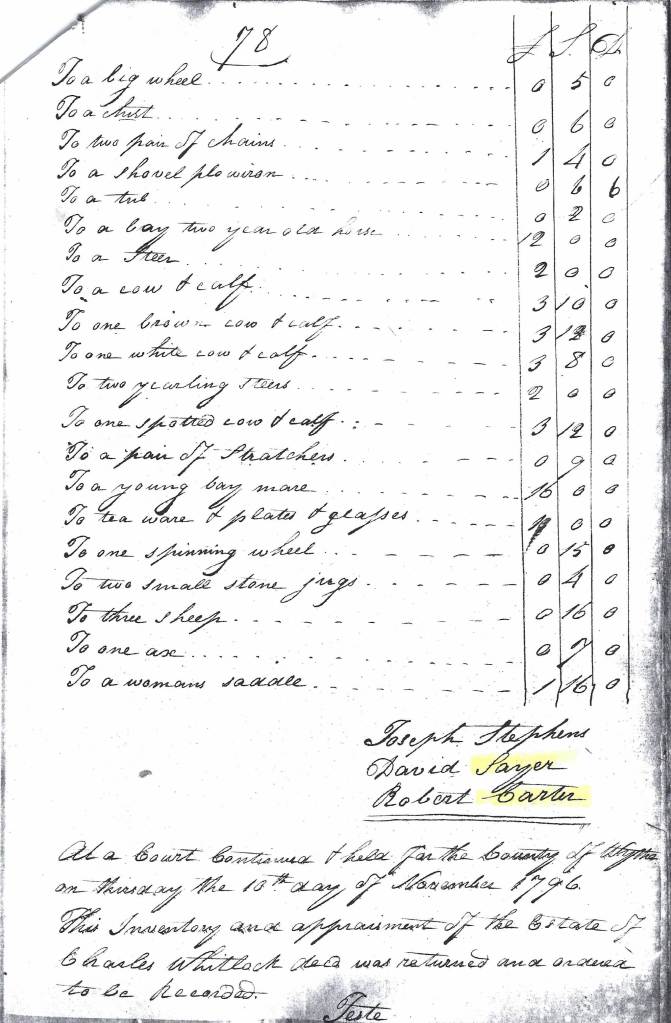 78
£ S. D
To a big wheel 0 5 0
To a chist 0 6 0
To two pair of chains 1 4 0
To a shovel plowiron 0 6 6
To a tub 0 2 0
To a bay two year old horse 12 0 0
To a Steer 2 0 0
To a cow & calf 3 10 0
To one brown cow & calf 3 12 0
To one white cow & calf 3 8 0
To two yearling steers 2 0 0
To one spotted cow & calf 3 12 0
To a pair of Stratchers 0 9 0
To a young bay mare 16 0 0
To tea ware & plates & glasses 1 0 0
To one spinning wheel 0 15 0
To two small stone jugs 0 4 0
To three sheep 0 16 0
To one ax 0 7 0
To a womans saddle 1 16 0
Joseph Stephens
David Sayer
Robert Carter
At a Court Continued & held for the County of Wythe
on thursday the 10th day of November 1796.
This Inventory and appraisment of the Estate of
Charles Whitlock decd was returned and ordered
to be Recorded.
Teste